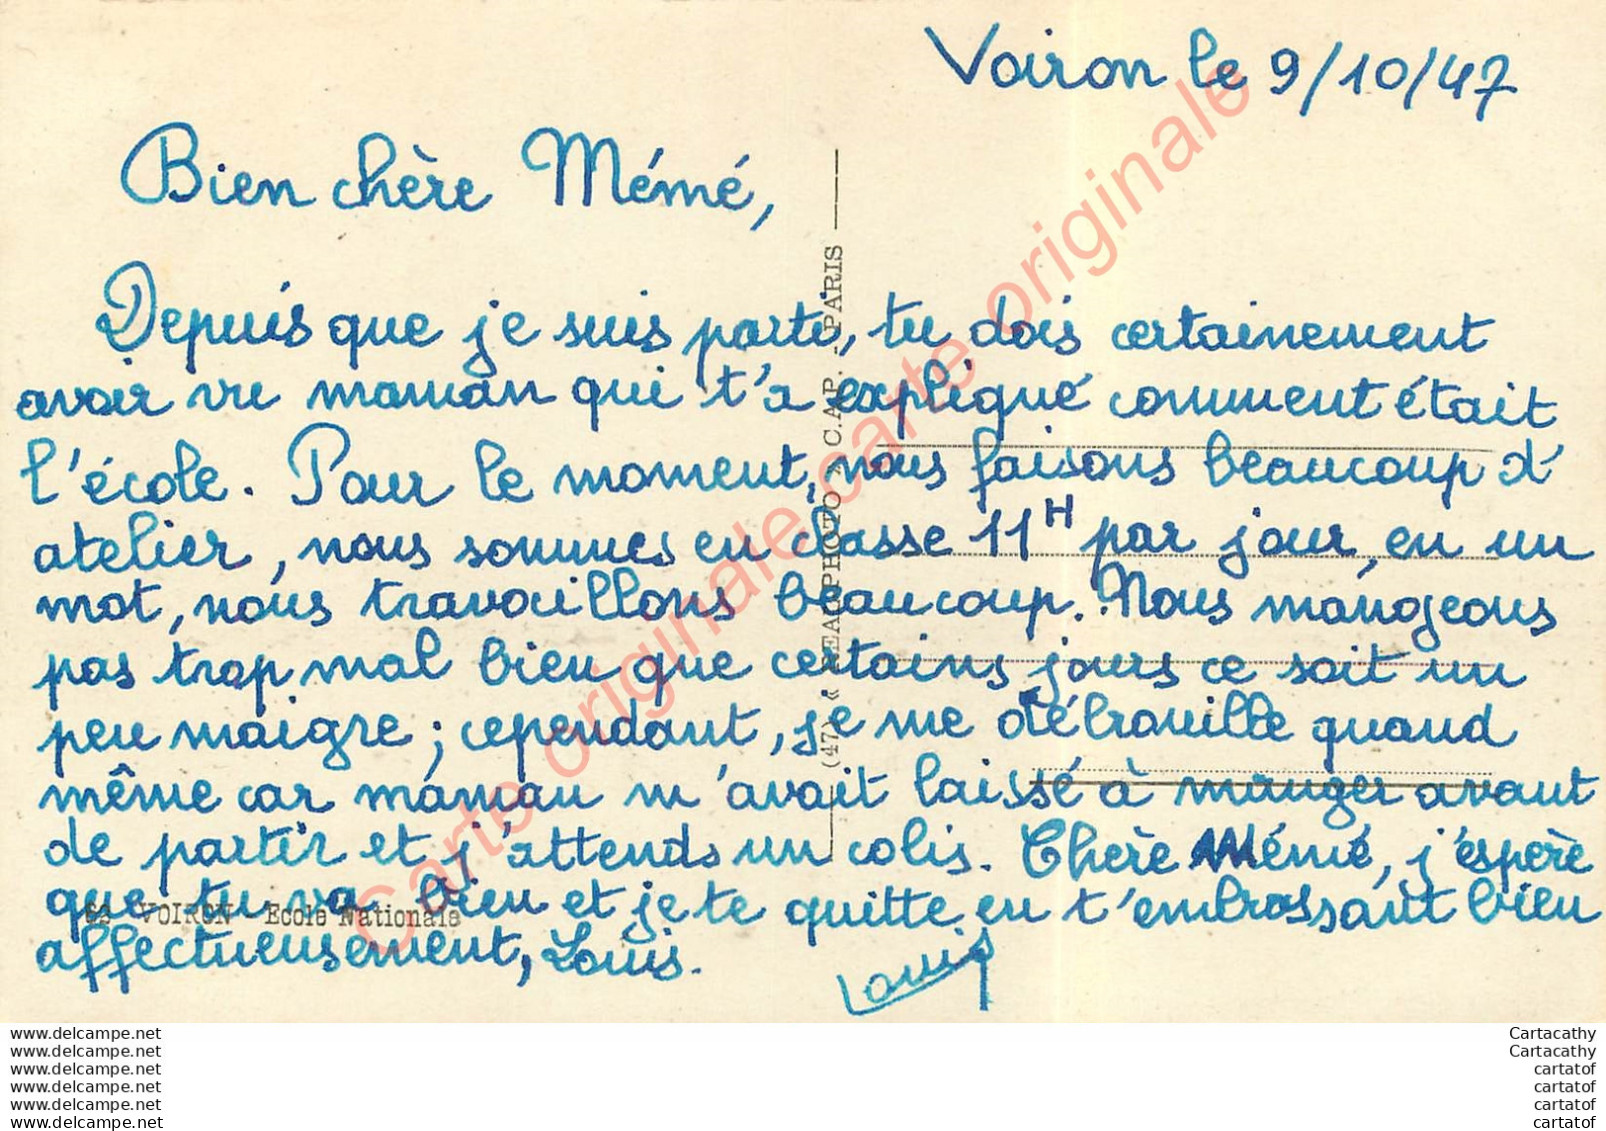 Voiron le 9/10/47
Bien chère Mémé,
Depuis que je suis parti, tu dois certainement
avoir vu maman qui t'a expliqué comment était
l'école. Pour le moment, nous faisons beaucoup d'
atelier, nous sommes en classe 11H par jour, en un
mot, nous travaillons beaucoup. Nous mangeons
pas trop mal bien que certains jours ce soit un
peu maigre ; cependant, je me débrouille quand
même car maman m'avait laissé à manger avant
de partir et j'attends un colis. Chère Mémé, j'espère
que tu va bien et je te quitte en t'embrassant bien
affectueusement, Louis.
Louis
63 VOIRON - Ecole Nationale
(47) « REAL-PHOTO » C.A.P. - PARIS
Carte originale carte originale
www.delcampe.net
www.delcampe.net
www.delcampe.net
www.delcampe.net
www.delcampe.net
www.delcampe.net
Cartacathy
Cartacathy
cartatof
cartatof
cartatof
cartatof